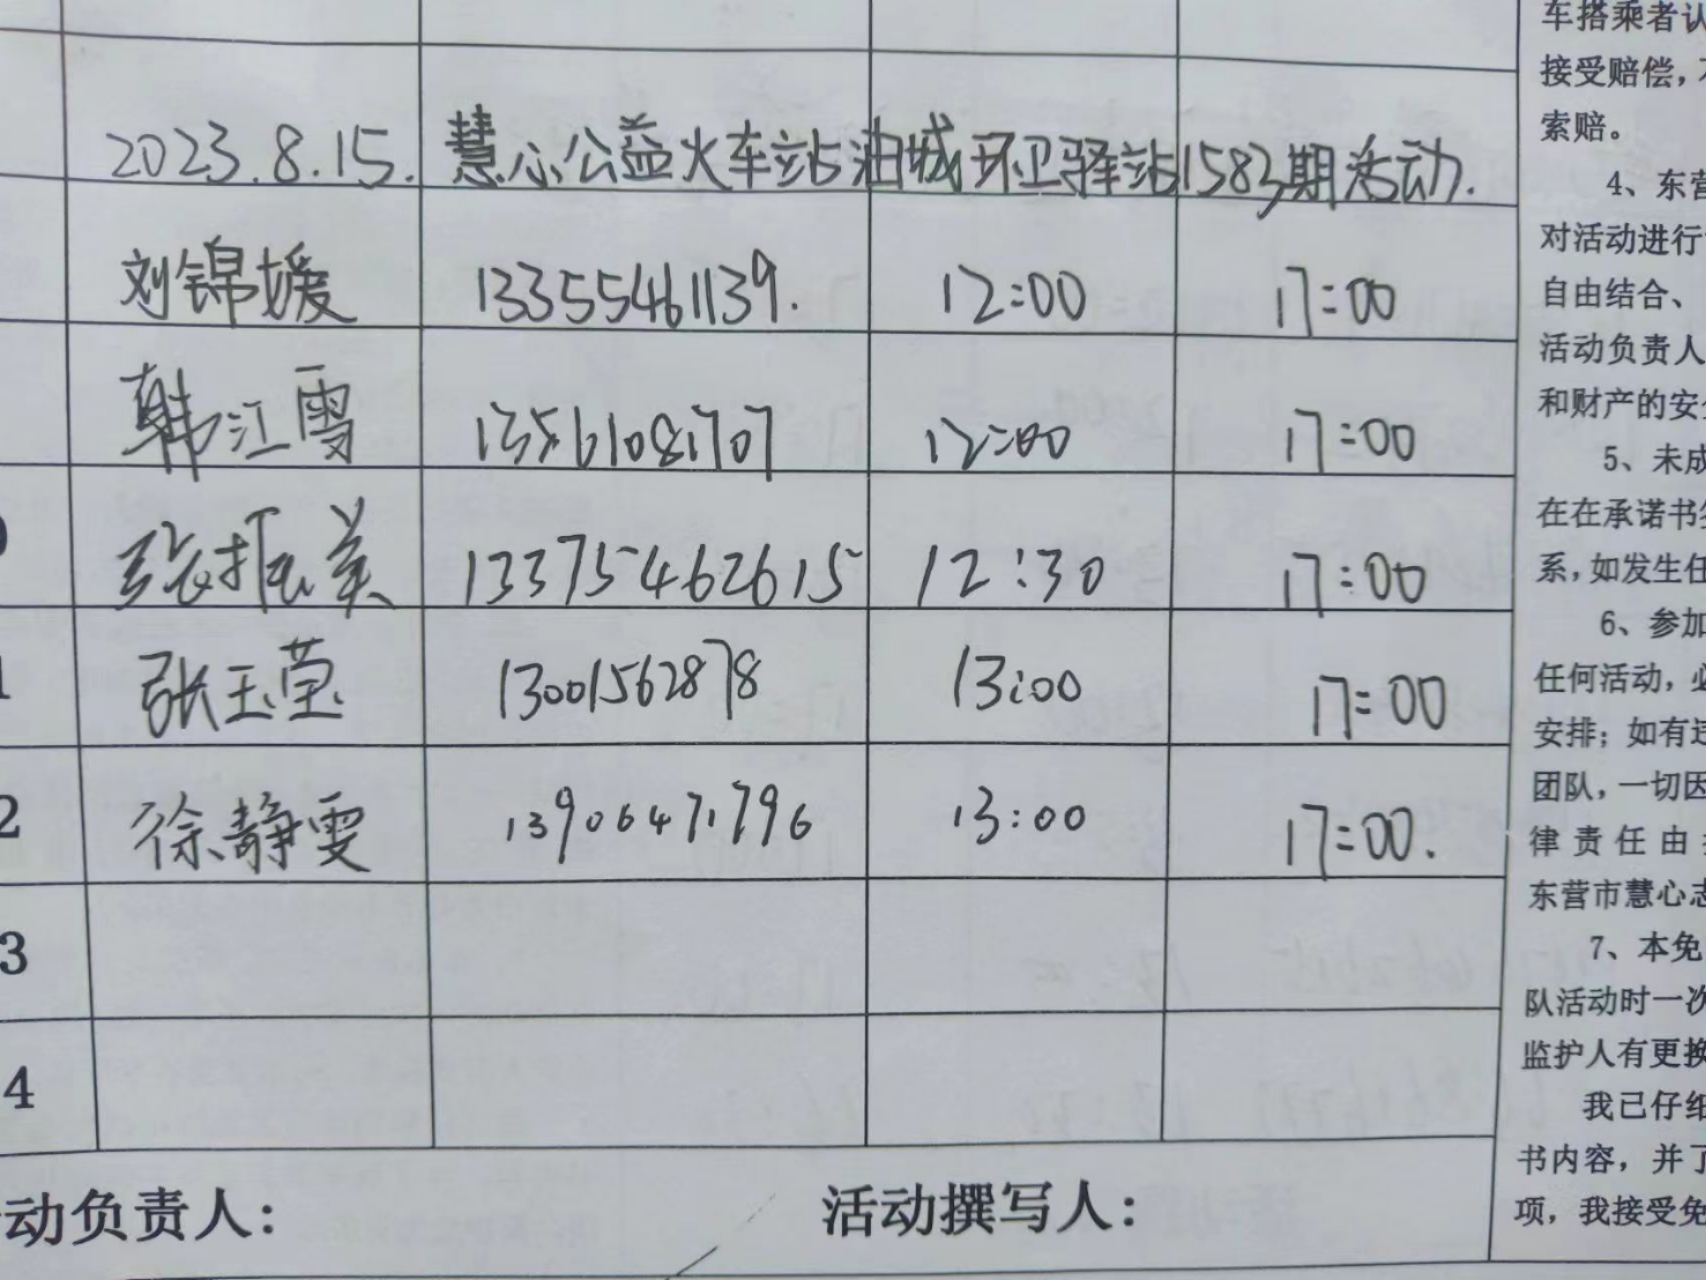 2023.8.15. 慧心公益火车站油城环卫驿站1583期活动.
刘锦媛 13355461139. 12:00 17:00
韩江雪 13561081707 12:00 17:00
张振美 13375462615 12:30 17:00
1 张玉莹 13001562878 13:00 17:00
2 徐静雯 13906471796 13:00 17:00.
3
4
动负责人: 活动撰写人:
车搭乘者认
接受赔偿,不
索赔。
4、东营
对活动进行
自由结合、
活动负责人
和财产的安全
5、未成
在在承诺书签
系,如发生任
6、参加
任何活动,必
安排;如有违
团队,一切因
律责任由
东营市慧心志
7、本免
队活动时一次
监护人有更换
我已仔细
书内容,并了
项,我接受免